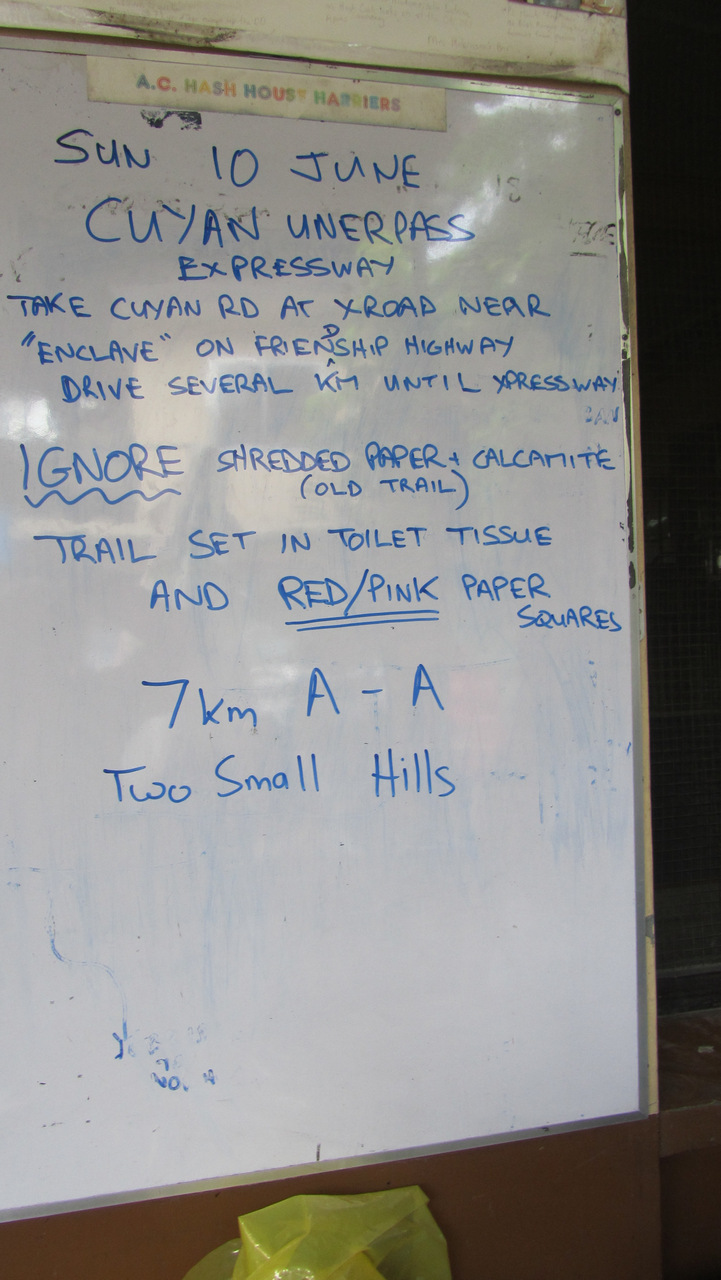 A.C. HASH HOUSE HARRIERS
SUN 10 JUNE
CUYAN UNERPASS
EXPRESSWAY
TAKE CUYAN RD AT XROAD NEAR
"ENCLAVE" ON FRIENDSHIP HIGHWAY
DRIVE SEVERAL KM UNTIL XPRESSWAY
IGNORE SHREDDED PAPER + CALCAMITE
(OLD TRAIL)
TRAIL SET IN TOILET TISSUE
AND RED/PINK PAPER
SQUARES
7km A - A
Two Small Hills